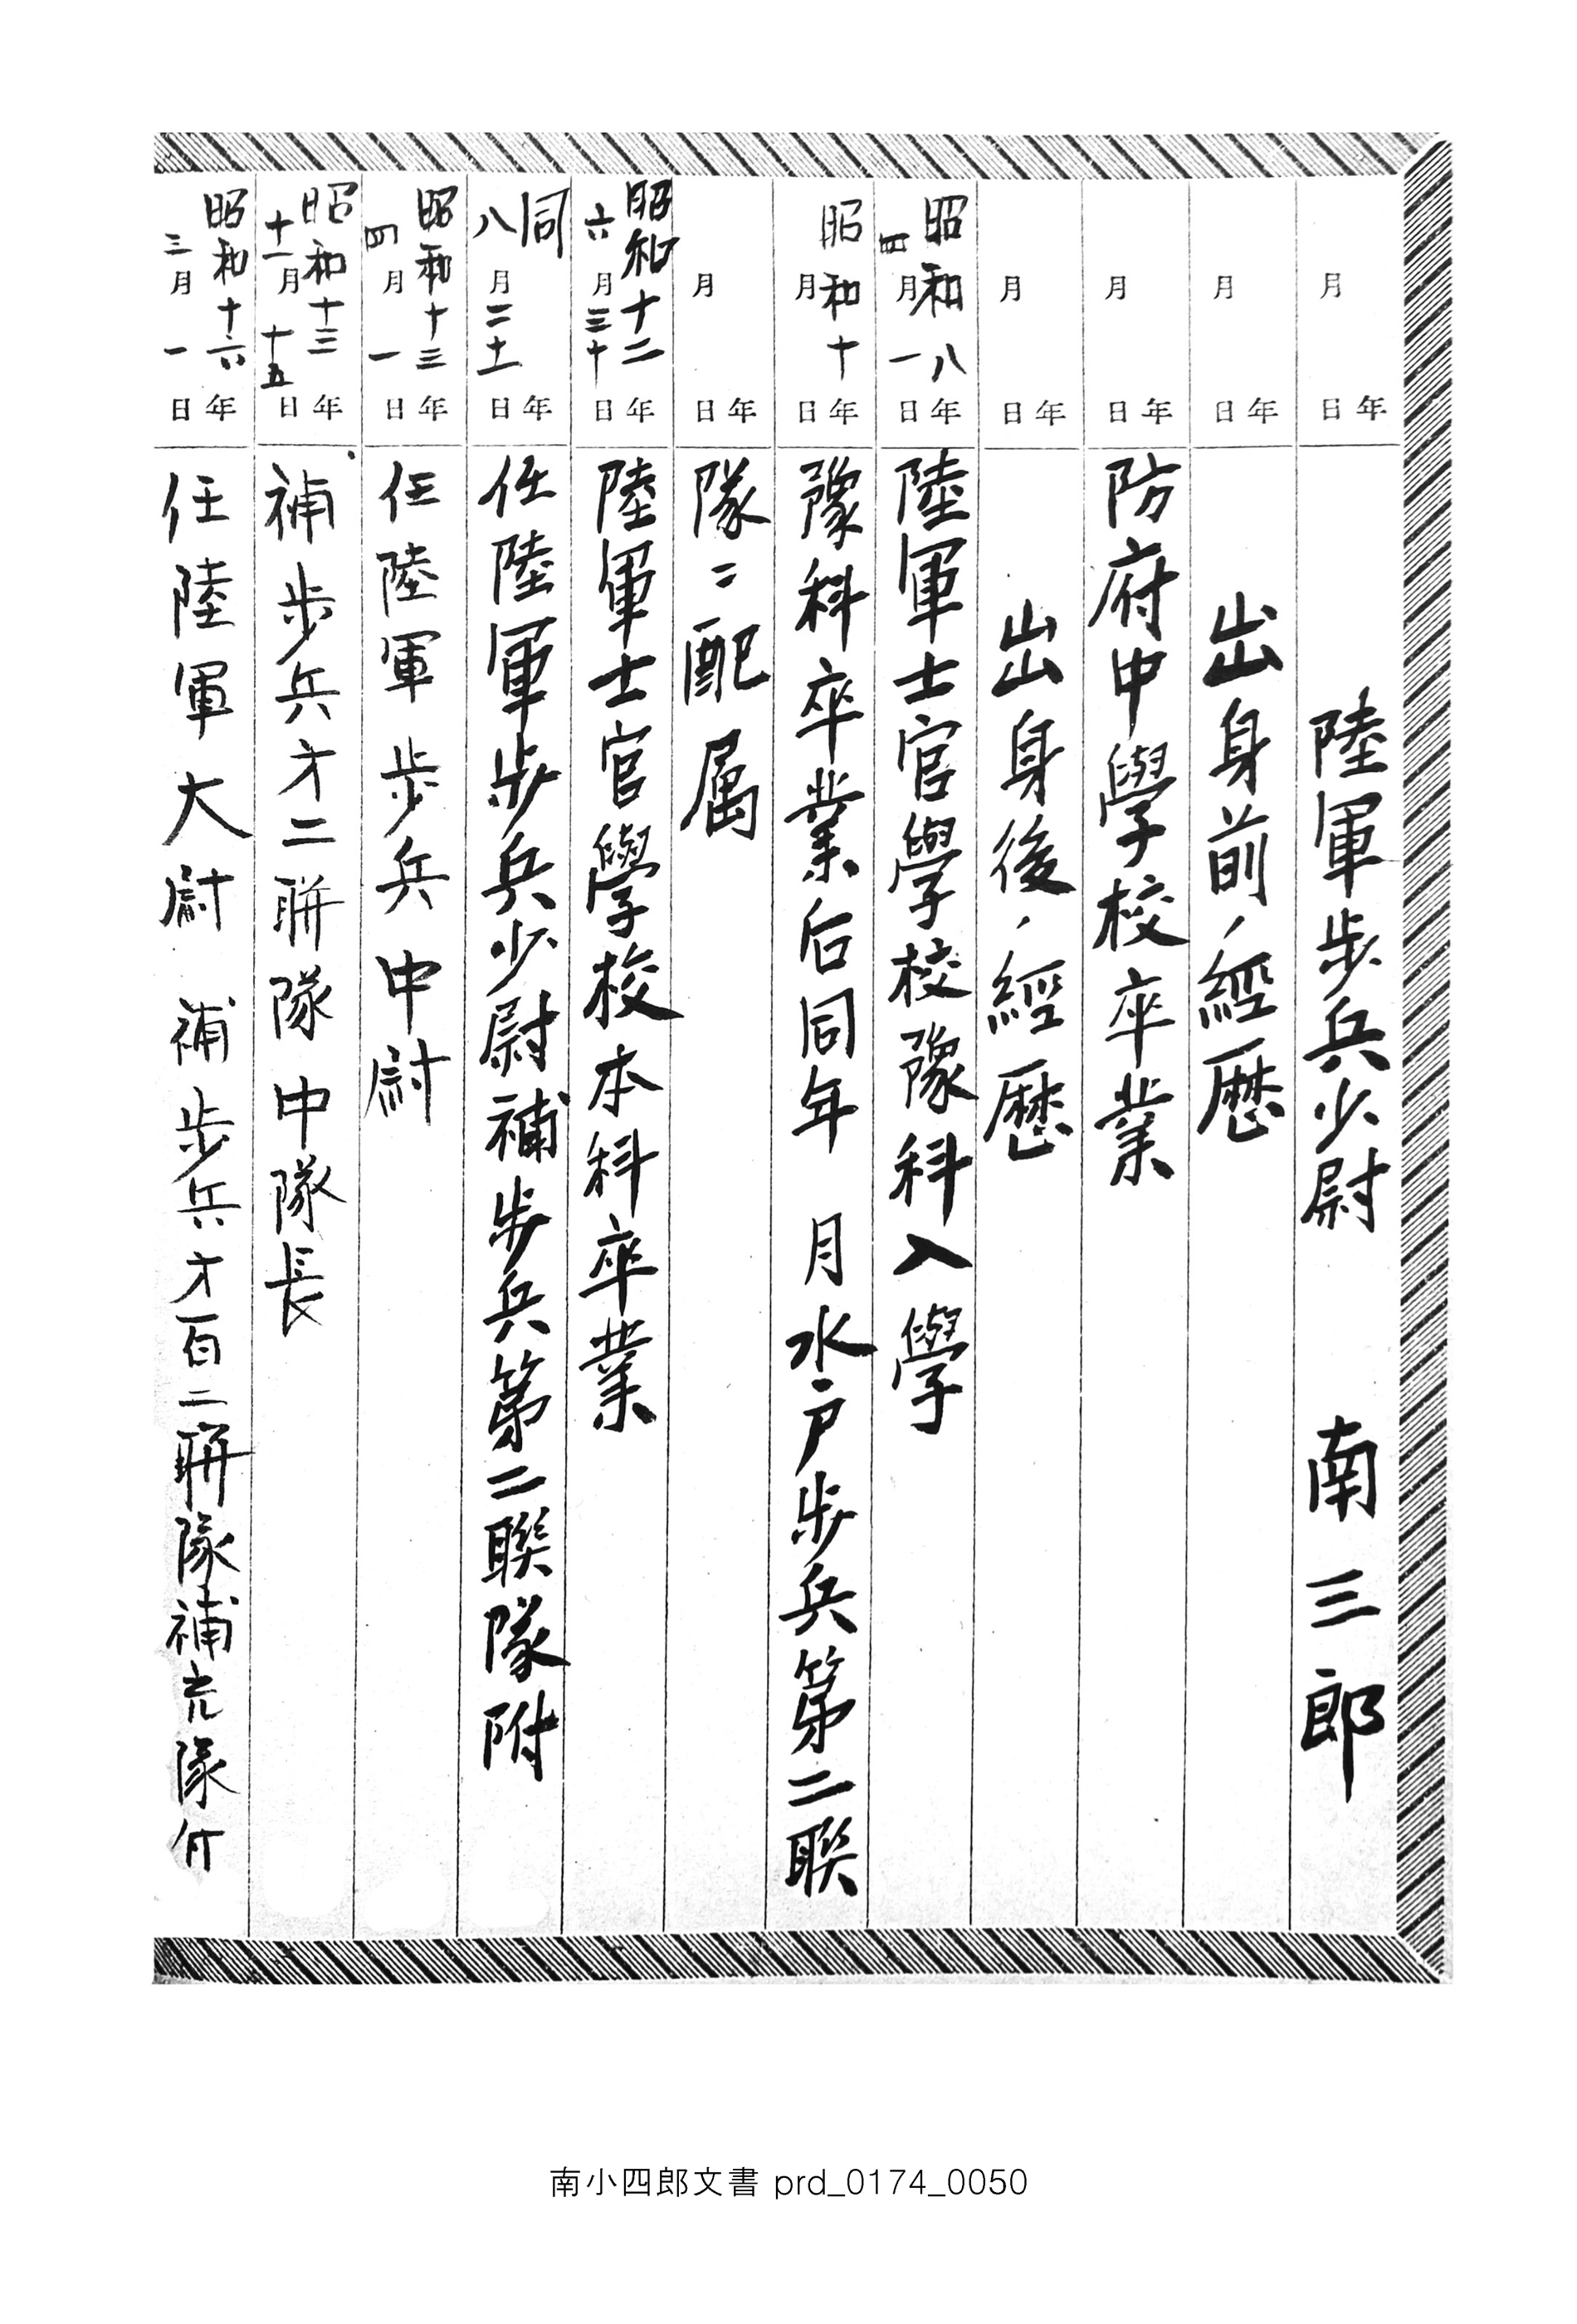 年 月 日 陸軍歩兵少尉 南三郎
年 月 日 出身前ノ經歴
年 月 日 防府中學校卒業
年 月 日 出身後ノ經歴
昭和八年四月一日 陸軍士官學校豫科入學
昭和十年 月 日 豫科卒業后同年 月水戸歩兵第二聯
年 月 日 隊ニ配属
昭和十二年六月三十日 陸軍士官學校本科卒業
同年八月二十一日 任陸軍歩兵少尉補歩兵第二聯隊附
昭和十三年四月一日 任陸軍歩兵中尉
昭和十三年十一月十五日 補歩兵才二聯隊中隊長
昭和十六年三月一日 任陸軍大尉 補歩兵才百二聯隊補充隊付
南小四郎文書 prd_0174_0050